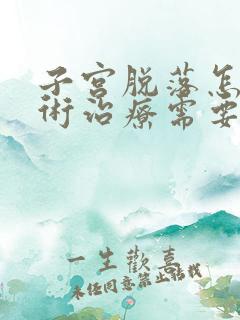 子宫脱落怎
術治療需要
一生歡喜
未经同意禁止搬线